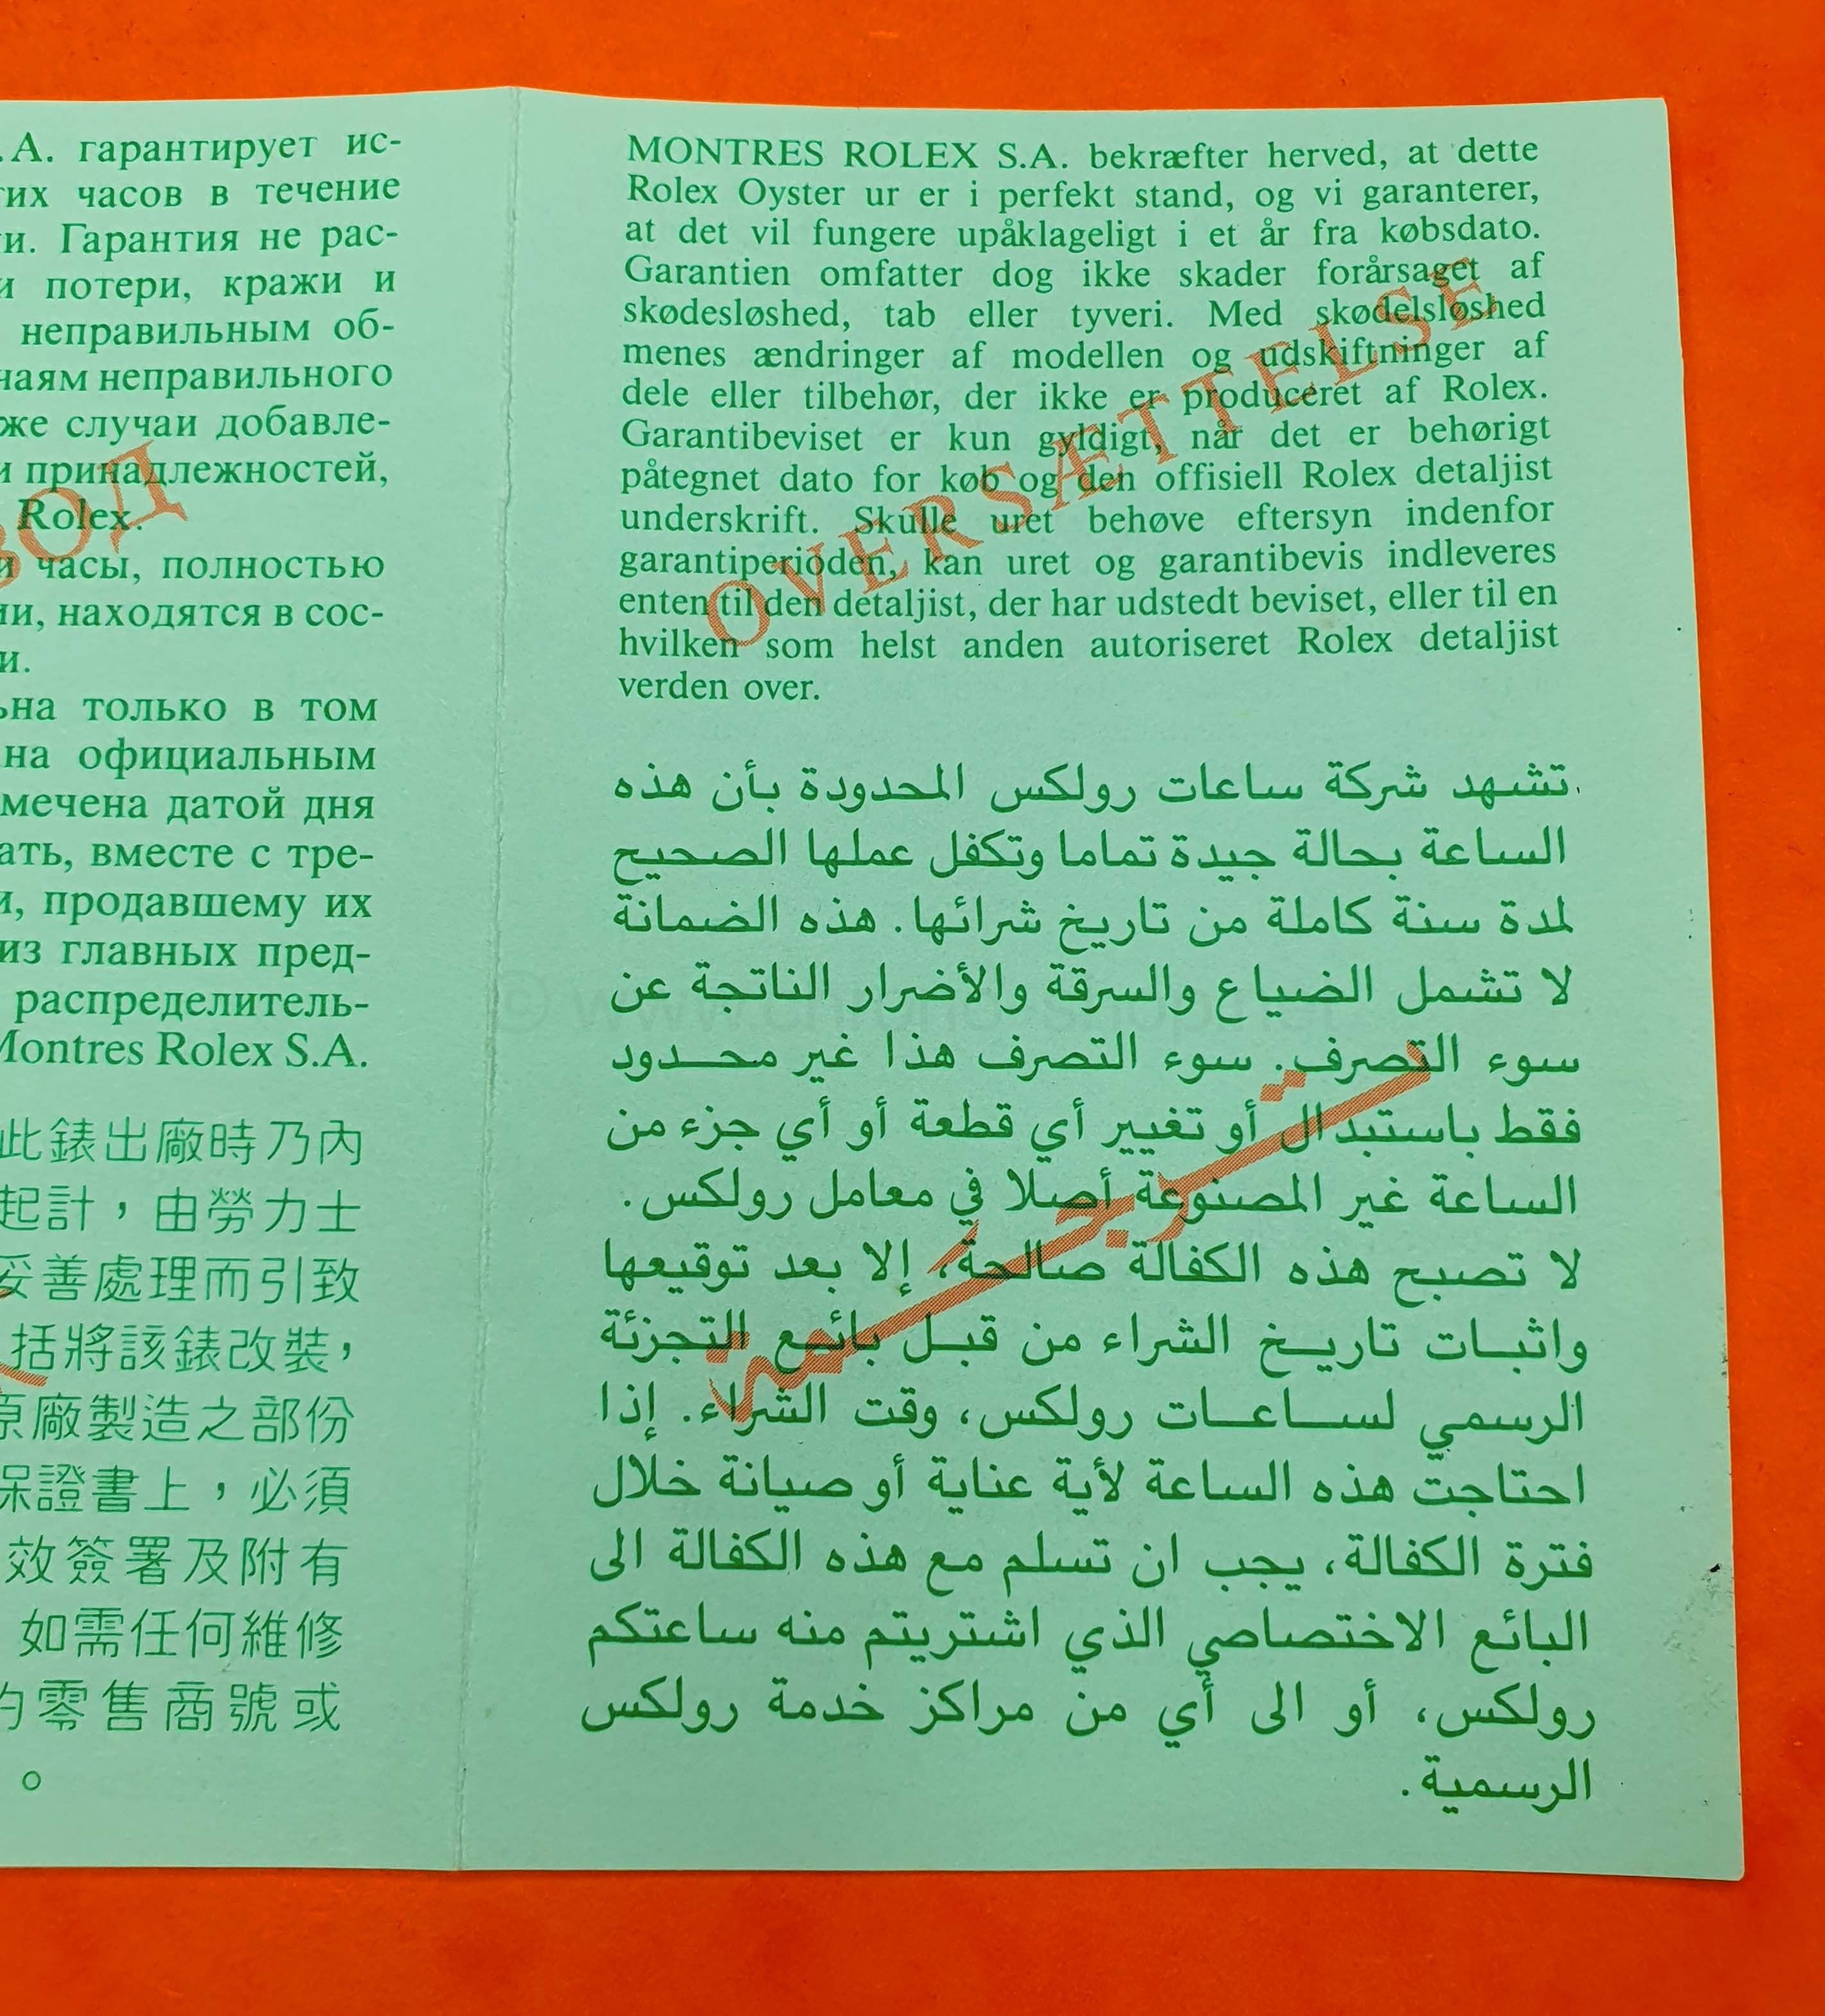 . A. гарантирует ис-
гих часов в течение
и. Гарантия не рас-
и потери, кражи и
неправильным об-
чаям неправильного
же случаи добавле-
и принадлежностей,
Rolex.
и часы, полностью
ии, находятся в сос-
и.
ьна только в том
на официальным
мечена датой дня
ать, вместе с тре-
и, продавшему их
из главных пред-
распределитель-
Montres Rolex S.A.
ВОД
此錶出廠時乃內
起計，由勞力士
妥善處理而引致
括將該錶改裝，
原廠製造之部份
保證書上，必須
效簽署及附有
如需任何維修
的零售商號或
。
MONTRES ROLEX S.A. bekræfter herved, at dette
Rolex Oyster ur er i perfekt stand, og vi garanterer,
at det vil fungere upåklageligt i et år fra købsdato.
Garantien omfatter dog ikke skader forårsaget af
skødesløshed, tab eller tyveri. Med skødelsløshed
menes ændringer af modellen og udskiftninger af
dele eller tilbehør, der ikke er produceret af Rolex.
Garantibeviset er kun gyldigt, når det er behørigt
påtegnet dato for køb og den offisiell Rolex detaljist
underskrift. Skulle uret behøve eftersyn indenfor
garantiperioden, kan uret og garantibevis indleveres
enten til den detaljist, der har udstedt beviset, eller til en
hvilken som helst anden autoriseret Rolex detaljist
verden over.
OVERSÆTTELSE
تشهد شركة ساعات رولكس المحدودة بأن هذه
الساعة بحالة جيدة تماما وتكفل عملها الصحيح
لمدة سنة كاملة من تاريخ شرائها. هذه الضمانة
لا تشمل الضياع والسرقة والأضرار الناتجة عن
سوء التصرف. سوء التصرف هذا غير محدود
فقط باستبدال أو تغيير أي قطعة أو أي جزء من
الساعة غير المصنوعة أصلا في معامل رولكس.
لا تصبح هذه الكفالة صالحة، إلا بعد توقيعها
واثبات تاريخ الشراء من قبل بائع التجزئة
الرسمي لساعات رولكس، وقت الشراء. إذا
احتاجت هذه الساعة لأية عناية أو صيانة خلال
فترة الكفالة، يجب ان تسلم مع هذه الكفالة الى
البائع الاختصاصي الذي اشتريتم منه ساعتكم
رولكس، أو الى أي من مراكز خدمة رولكس
الرسمية.